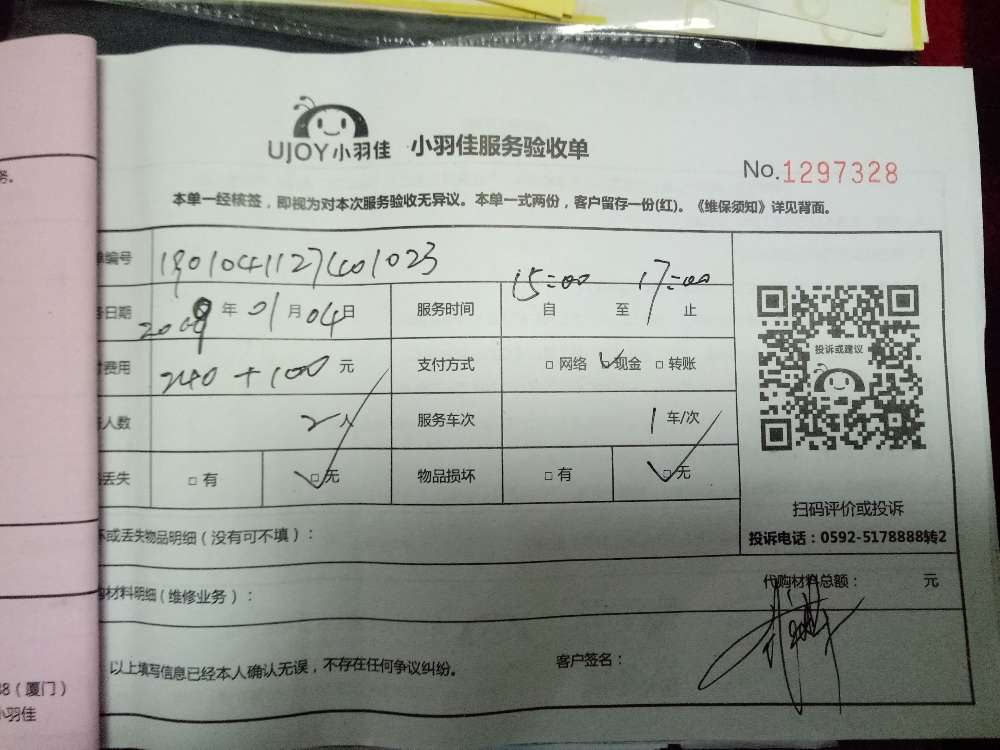 UJOY小羽佳 小羽佳服务验收单
No.1297328
务。
本单一经核签，即视为对本次服务验收无异议。本单一式两份，客户留存一份(红)。《维保须知》详见背面。
单编号 190104112740 1023
日期 年 01月04日 服务时间 自 15:00 至 17:00 止
费用 240+100元 支付方式 □网络 □现金 □转账
投诉或建议
人数 2人 服务车次 1车/次
丢失 □有 □无 物品损坏 □有 □无
扫码评价或投诉
投诉电话：0592-5178888转2
坏或丢失物品明细（没有可不填）：
购材料明细（维修业务）： 代购材料总额： 元
以上填写信息已经本人确认无误，不存在任何争议纠纷。 客户签名：
88（厦门）
小羽佳